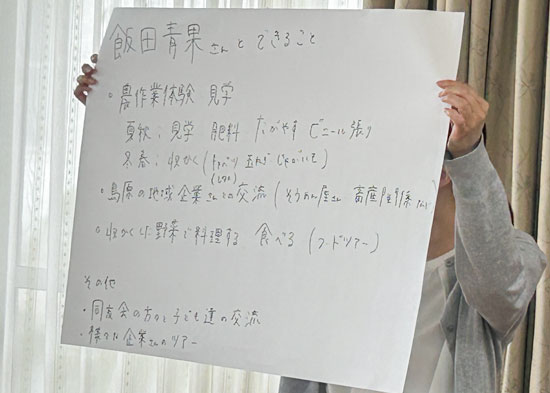 飯田青果さんとできること
・農作業体験 見学
夏秋：見学 肥料 たがやす ビニール張り
冬春：収かく(キャベツ 玉ねぎ じゃがいも)
(レタス)
・島原の地域企業さんとの交流(そうめん屋さん 畜産関係など)
・収かくした野菜で料理する 食べる (フードツアー)
その他
・同友会の方々と子ども達の交流
・様々な企業さんのツアー